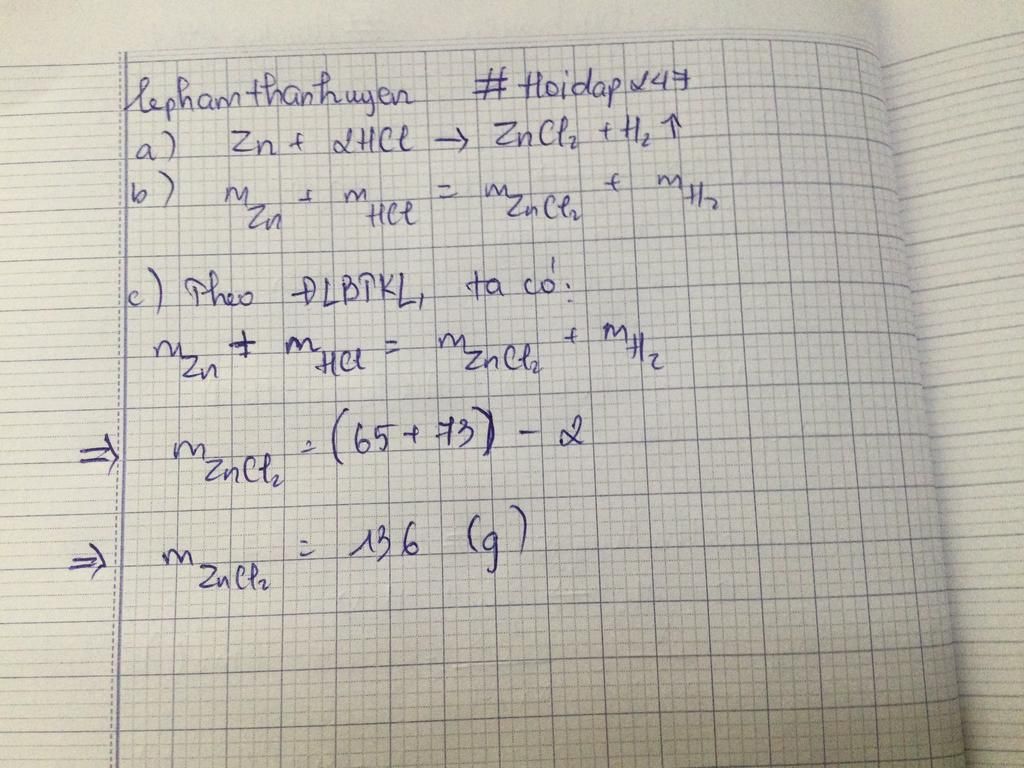 lephamthanhuyen # Hoidap247
a) Zn + 2HCl → ZnCl₂ + H₂ ↑
b) m_Zn + m_HCl = m_ZnCl₂ + m_H₂
c) Theo ĐLBTKL, ta có:
m_Zn + m_HCl = m_ZnCl₂ + m_H₂
⇒ m_ZnCl₂ = (65 + 73) - 2
⇒ m_ZnCl₂ = 136 (g)